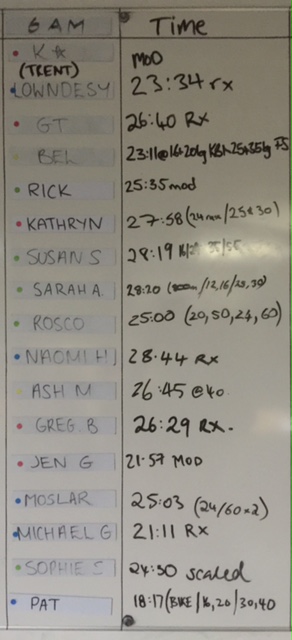 6 AM Time
K☆ MOD
(TRENT)
LOWNDESY 23:34 rx
GT 26:40 RX
BEL 23:11@16+20kg KBs 25+35kg FS
RICK 25:35 mod
KATHRYN 27:58 (24 /25 30)
SUSAN S 28:19
SARAH A. 28:20 (800m/12,16/25,30)
ROSCO 25:00 (20,50,24,60)
NAOMI H 28.44 RX
ASH M 26:45 @40
GREG B 26:29 RX.
JEN G 21:57 MOD
MOSLAR 25:03 (24/60x2)
MICHAEL G 21:11 RX
SOPHIE S 24:50 scaled
PAT 18:17 (BIKE/16,20/30,40